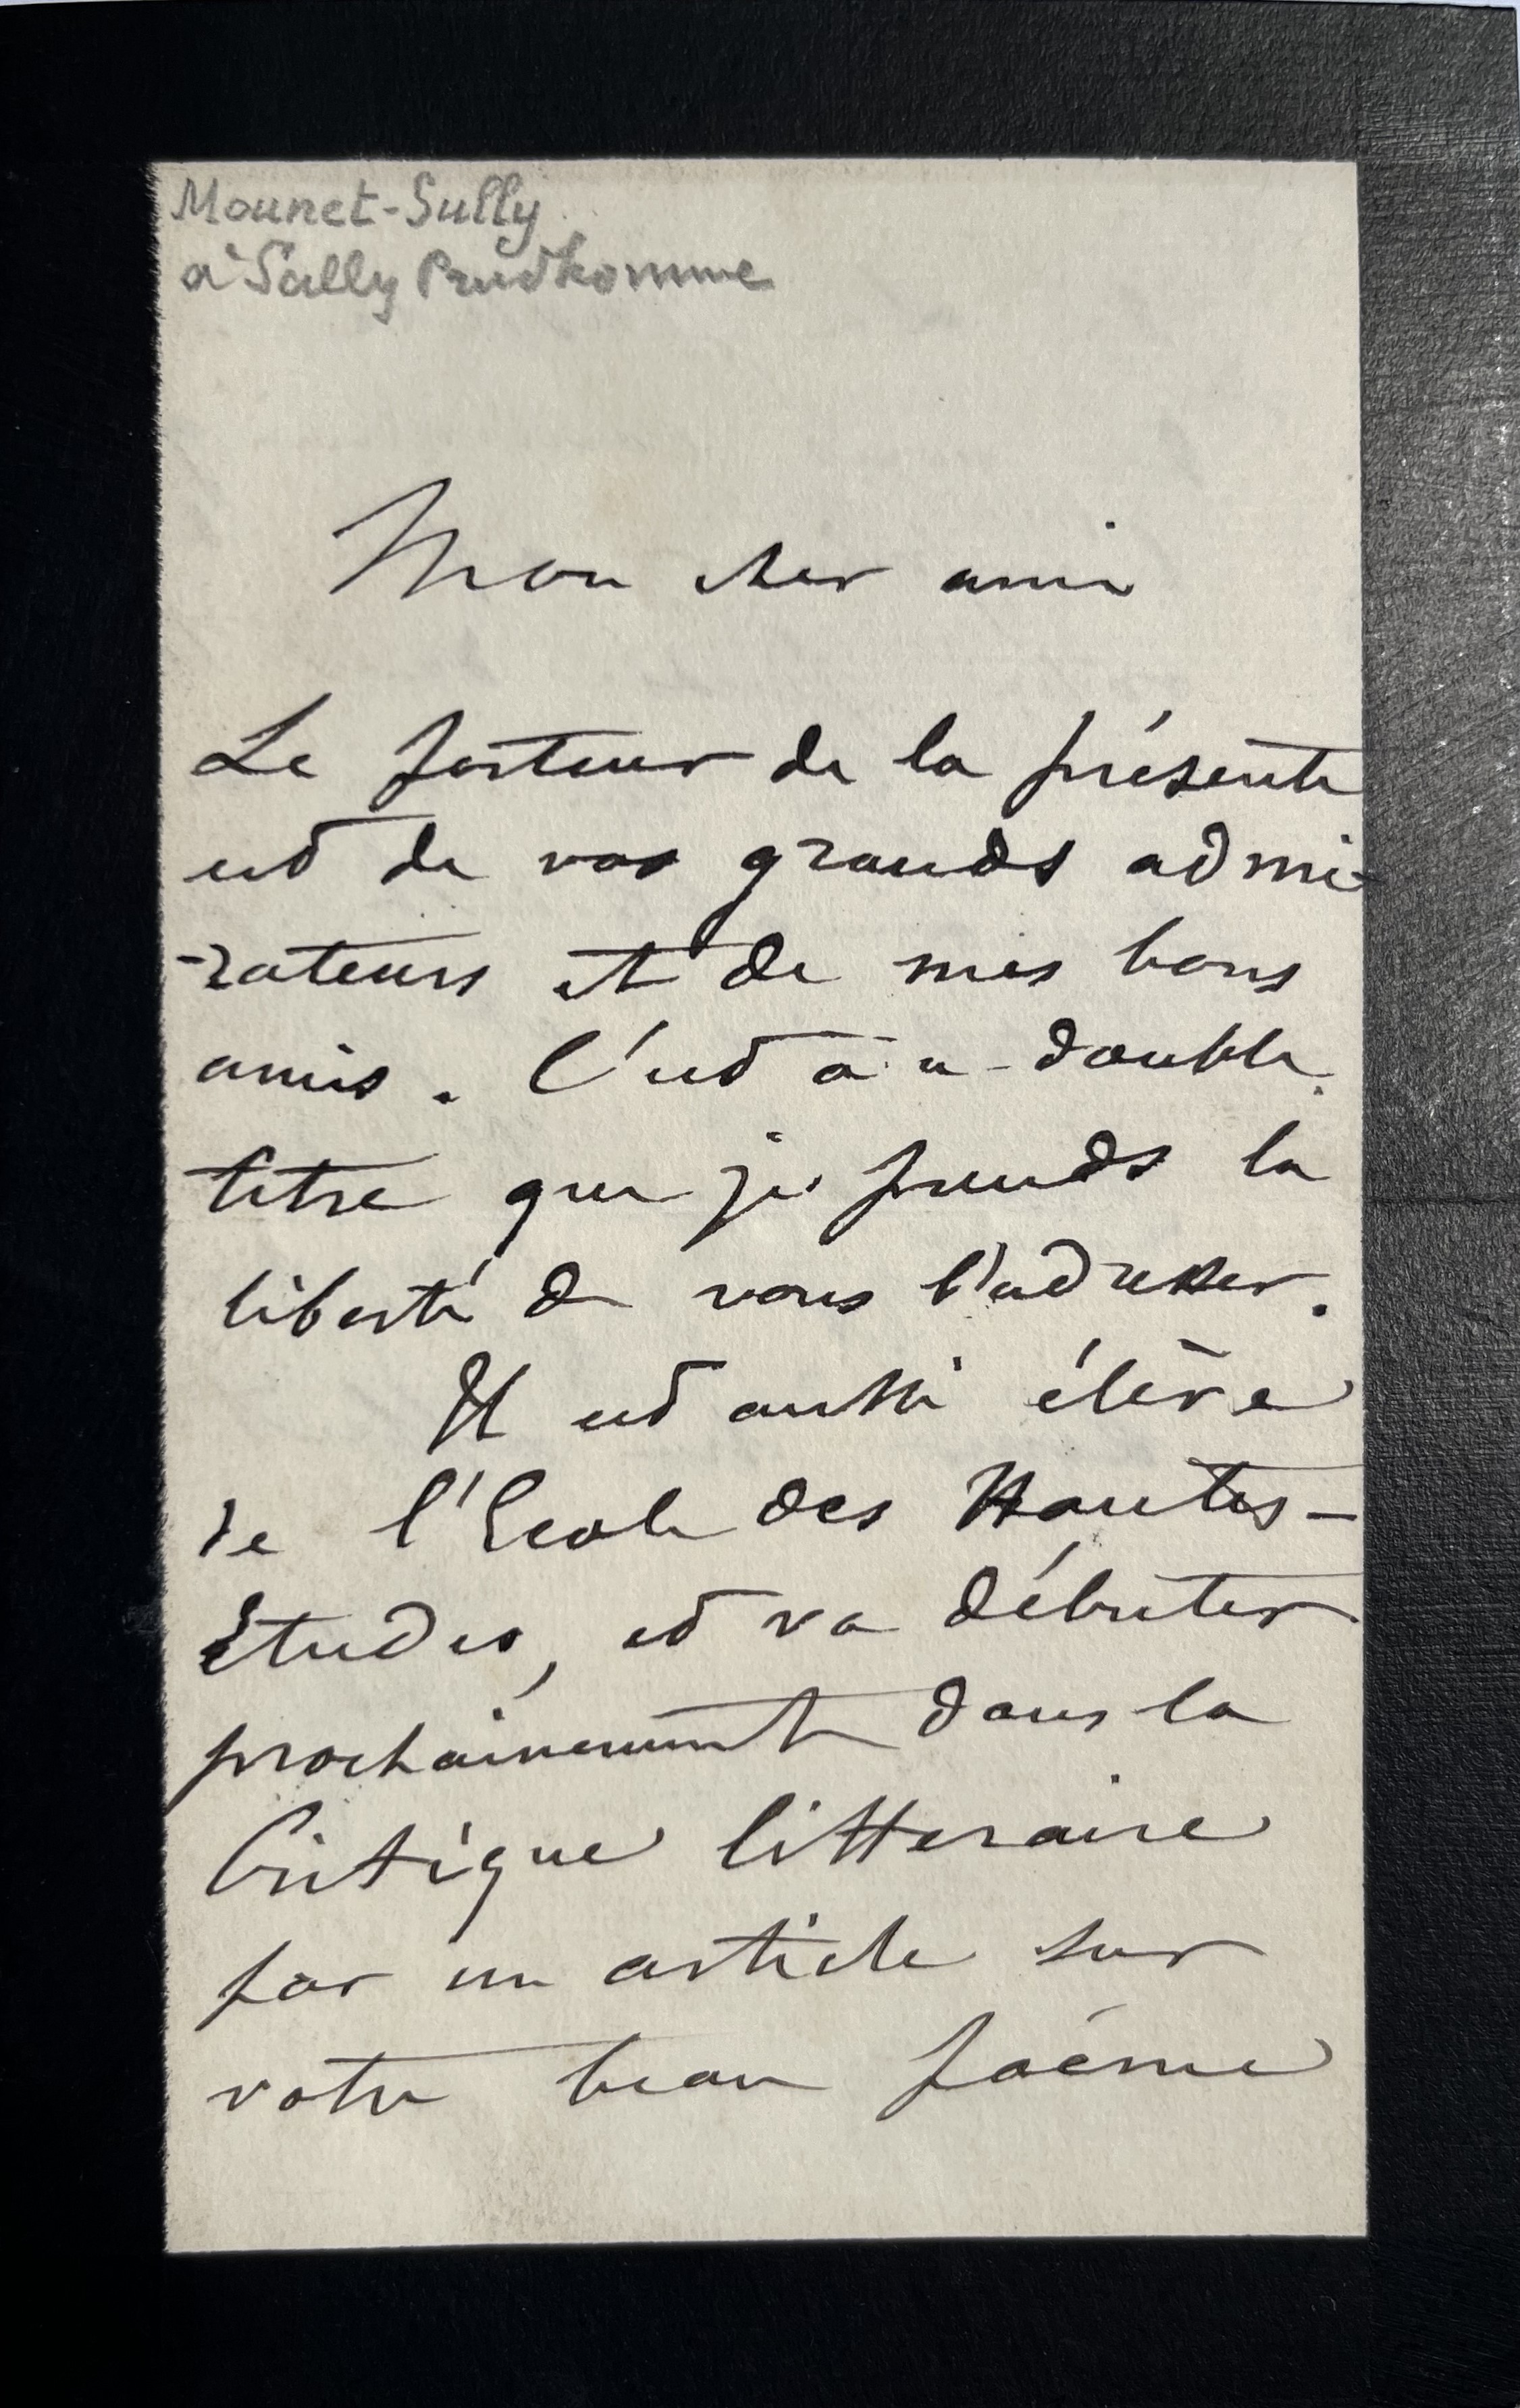 Mounet-Sully
à Sully Prudhomme
Mon cher ami
Le porteur de la présente
est de vos grands admi-
-rateurs et de mes bons
amis. C'est à ce double
titre que je prends la
liberté de vous l'adresser.
Il est aussi élève
de l'Ecole des Hautes-
Etudes, et va débuter
prochainement dans la
Critique litteraire
par un article sur
votre beau poéme